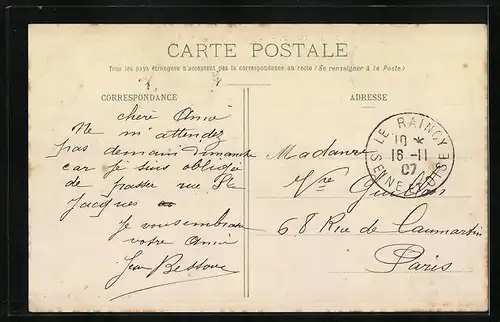 CARTE POSTALE
Tous les pays étrangers n'acceptent pas la correspondance au recto (Se renseigner à la Poste)
CORRESPONDANCE
ADRESSE
chère Amie
Ne m'attendez
pas demain dimanche
car je suis obligé
de passer rue
Jacques
Je vous embrasse
votre Ami
Jean
LE RAINCY
10 *
16 - 11
07
SEINE ET OISE
Madame
Vve
68 Rue de Caumartin
Paris